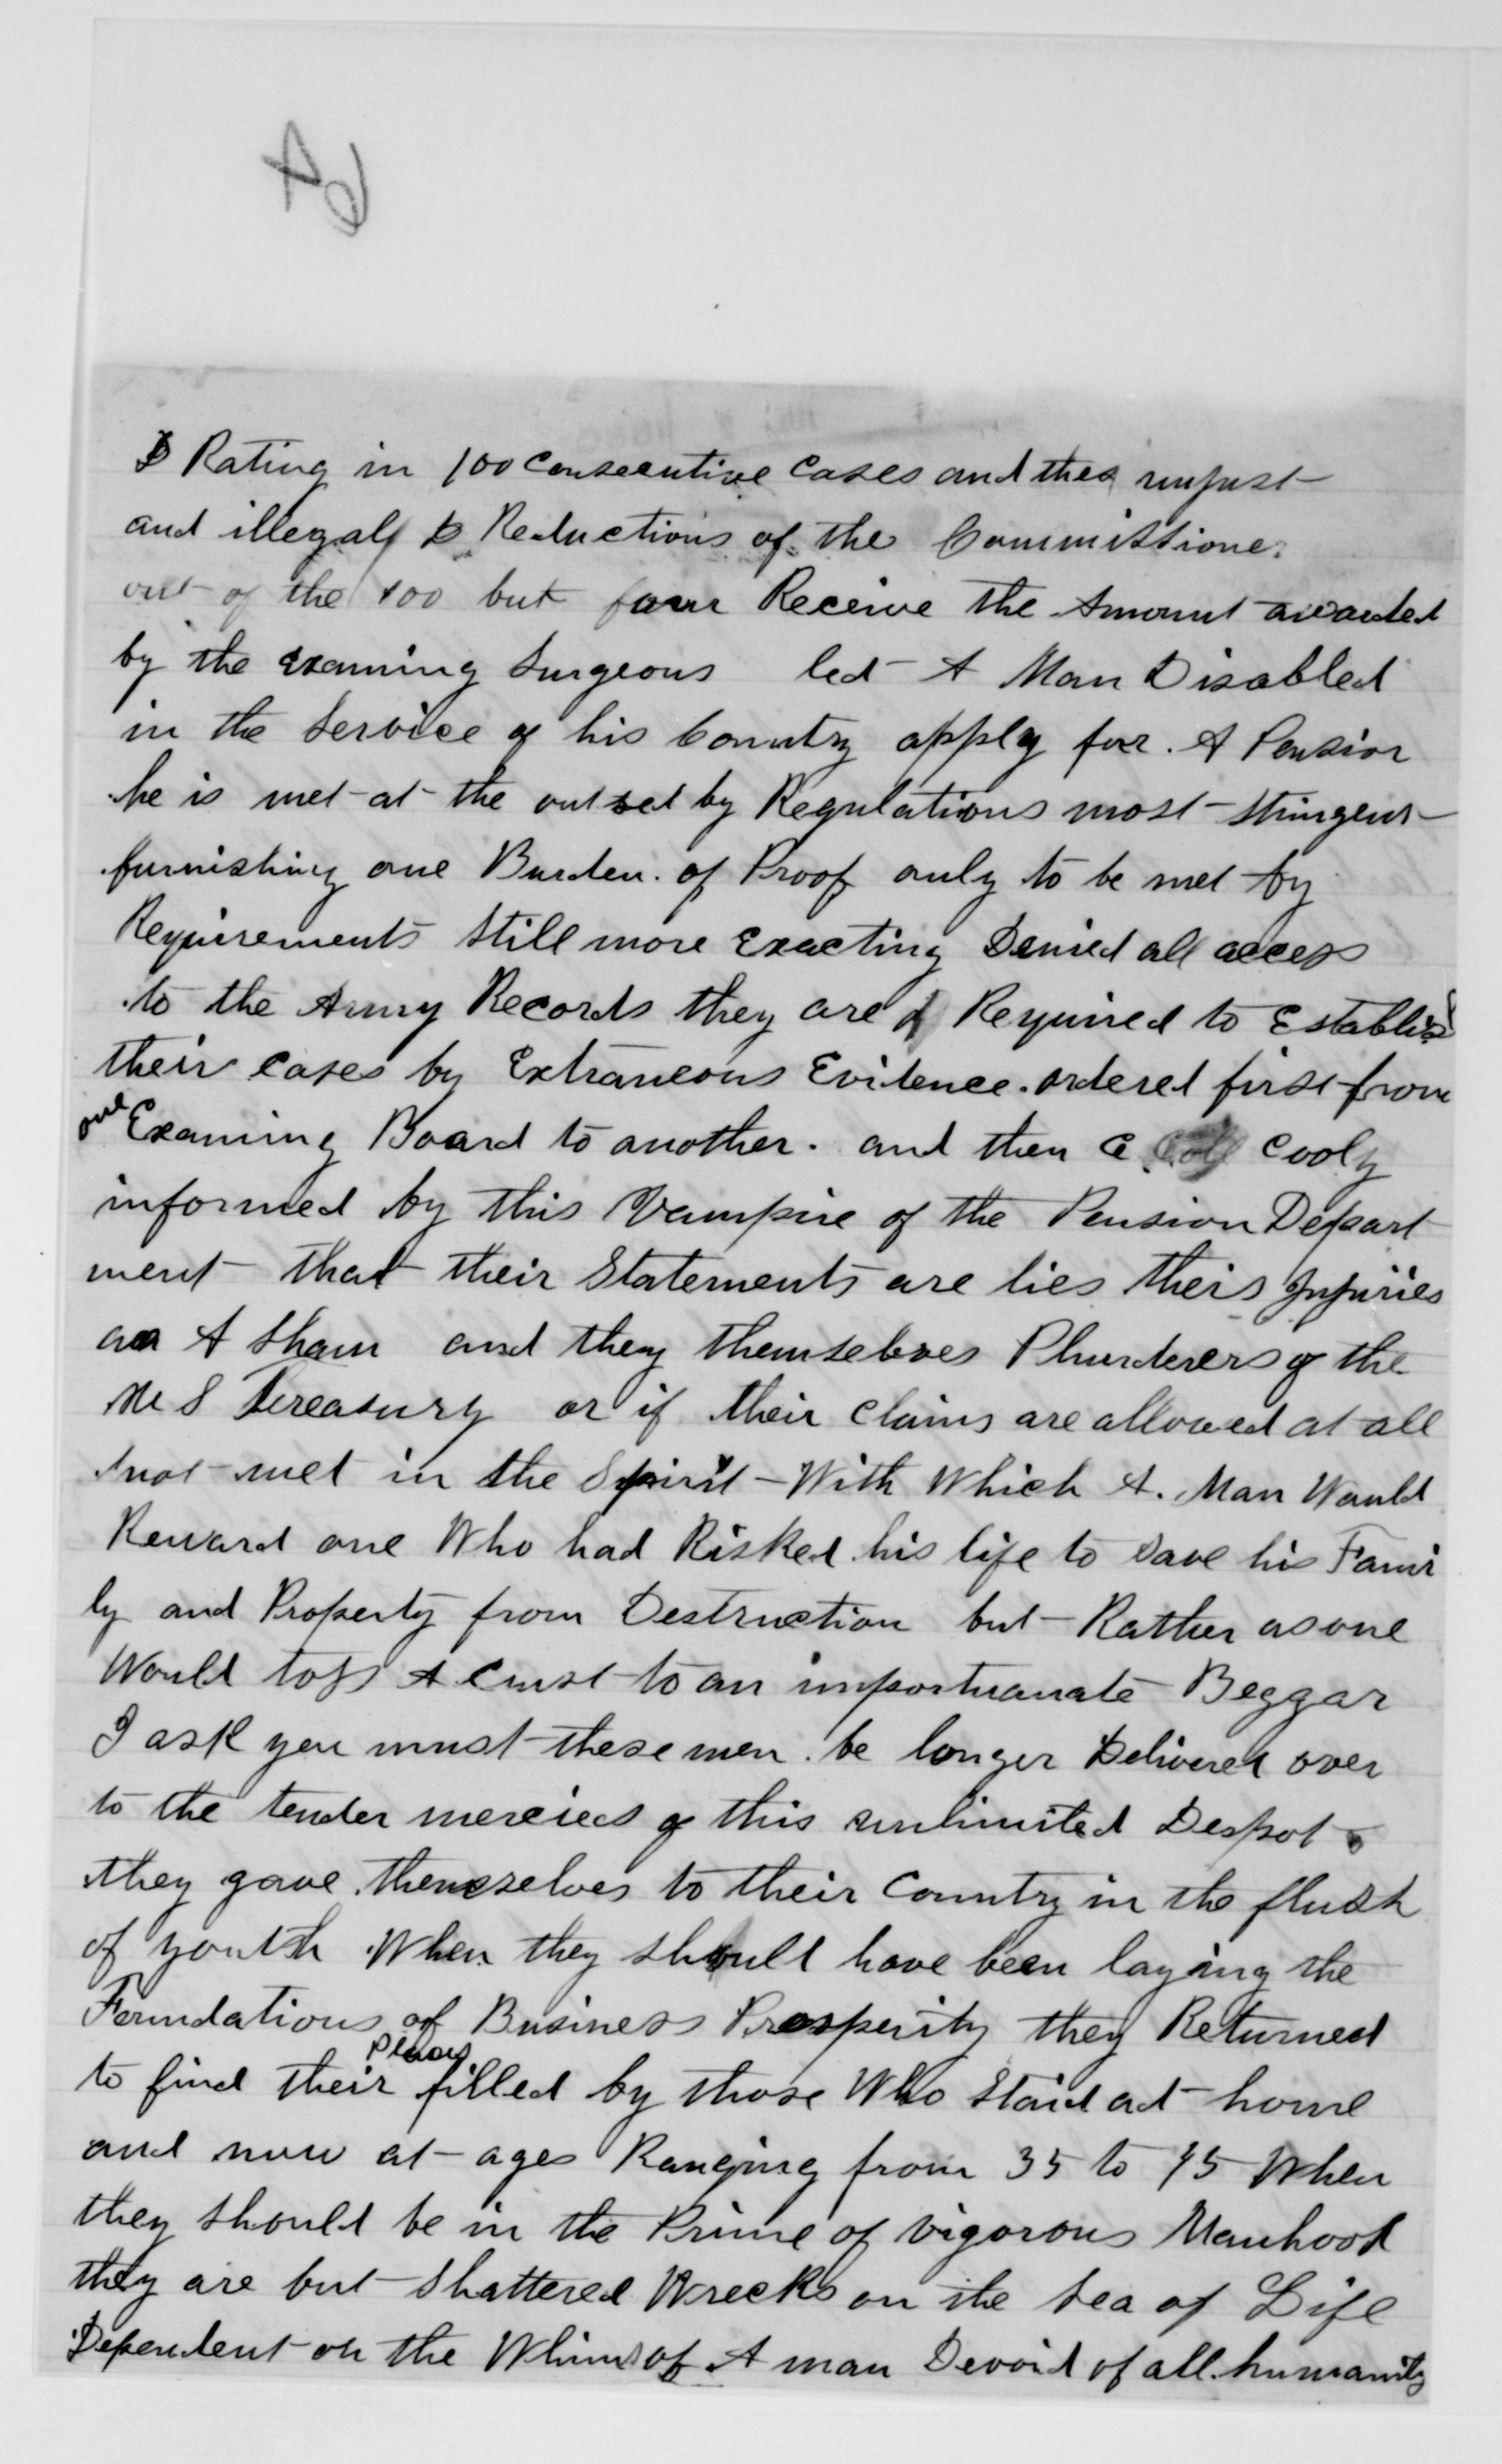 Rating in 100 Consecutive Cases and thes unjust
and illegal Reductions of the Committione
out of the 100 but four Receive the Amount awarded
by the Examing Surgeons led A Man Disabled
in the Service of his Country apply for A Pension
he is met at the outset by Regulations most stringent
furnishing one Burden of Proof only to be met by
Requirements Still more Exacting Denied all access
to the Army Records they are Required to Establish
their Cases by Extraneous Evidence. ordered first from
one Examing Board to another. and then Cooly
informed by this Vampire of the Pension Depart
ment that their Statements are lies theirs Injuries
as A Sham and they themselves Plunderers of the
U S Treasury or if their Claims are allowed at all
not met in the Spirit With Which A. Man Would
Reward one Who had Risked his life to Save his Fami
ly and Property from Destruction but Rather as one
Would toss A Crust to an importuanate Beggar
I ask you must these men be longer Delivered over
to the tender mercies of this unlimited Despot
they gave themselves to their Country in the flush
of youth When they should have been laying the
Foundations of Business Prosperity they Returned
to find their places filled by those Who Staid at home
and now at ages Ranging from 35 to 45 When
they should be in the Prime of Vigorous Manhood
they are but Shattered Wrecks on the Sea of Life
Dependent on the Whims of A man Devoid of all humanity